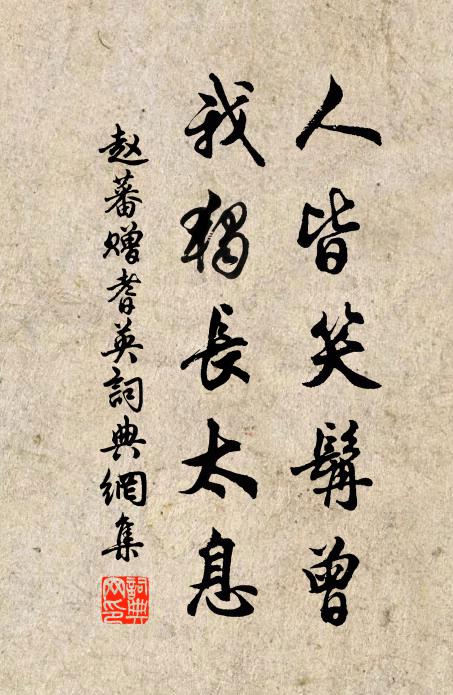 人皆笑髯曾
我獨長太息
赵蕃赠耆英詞典網集
詞典网印